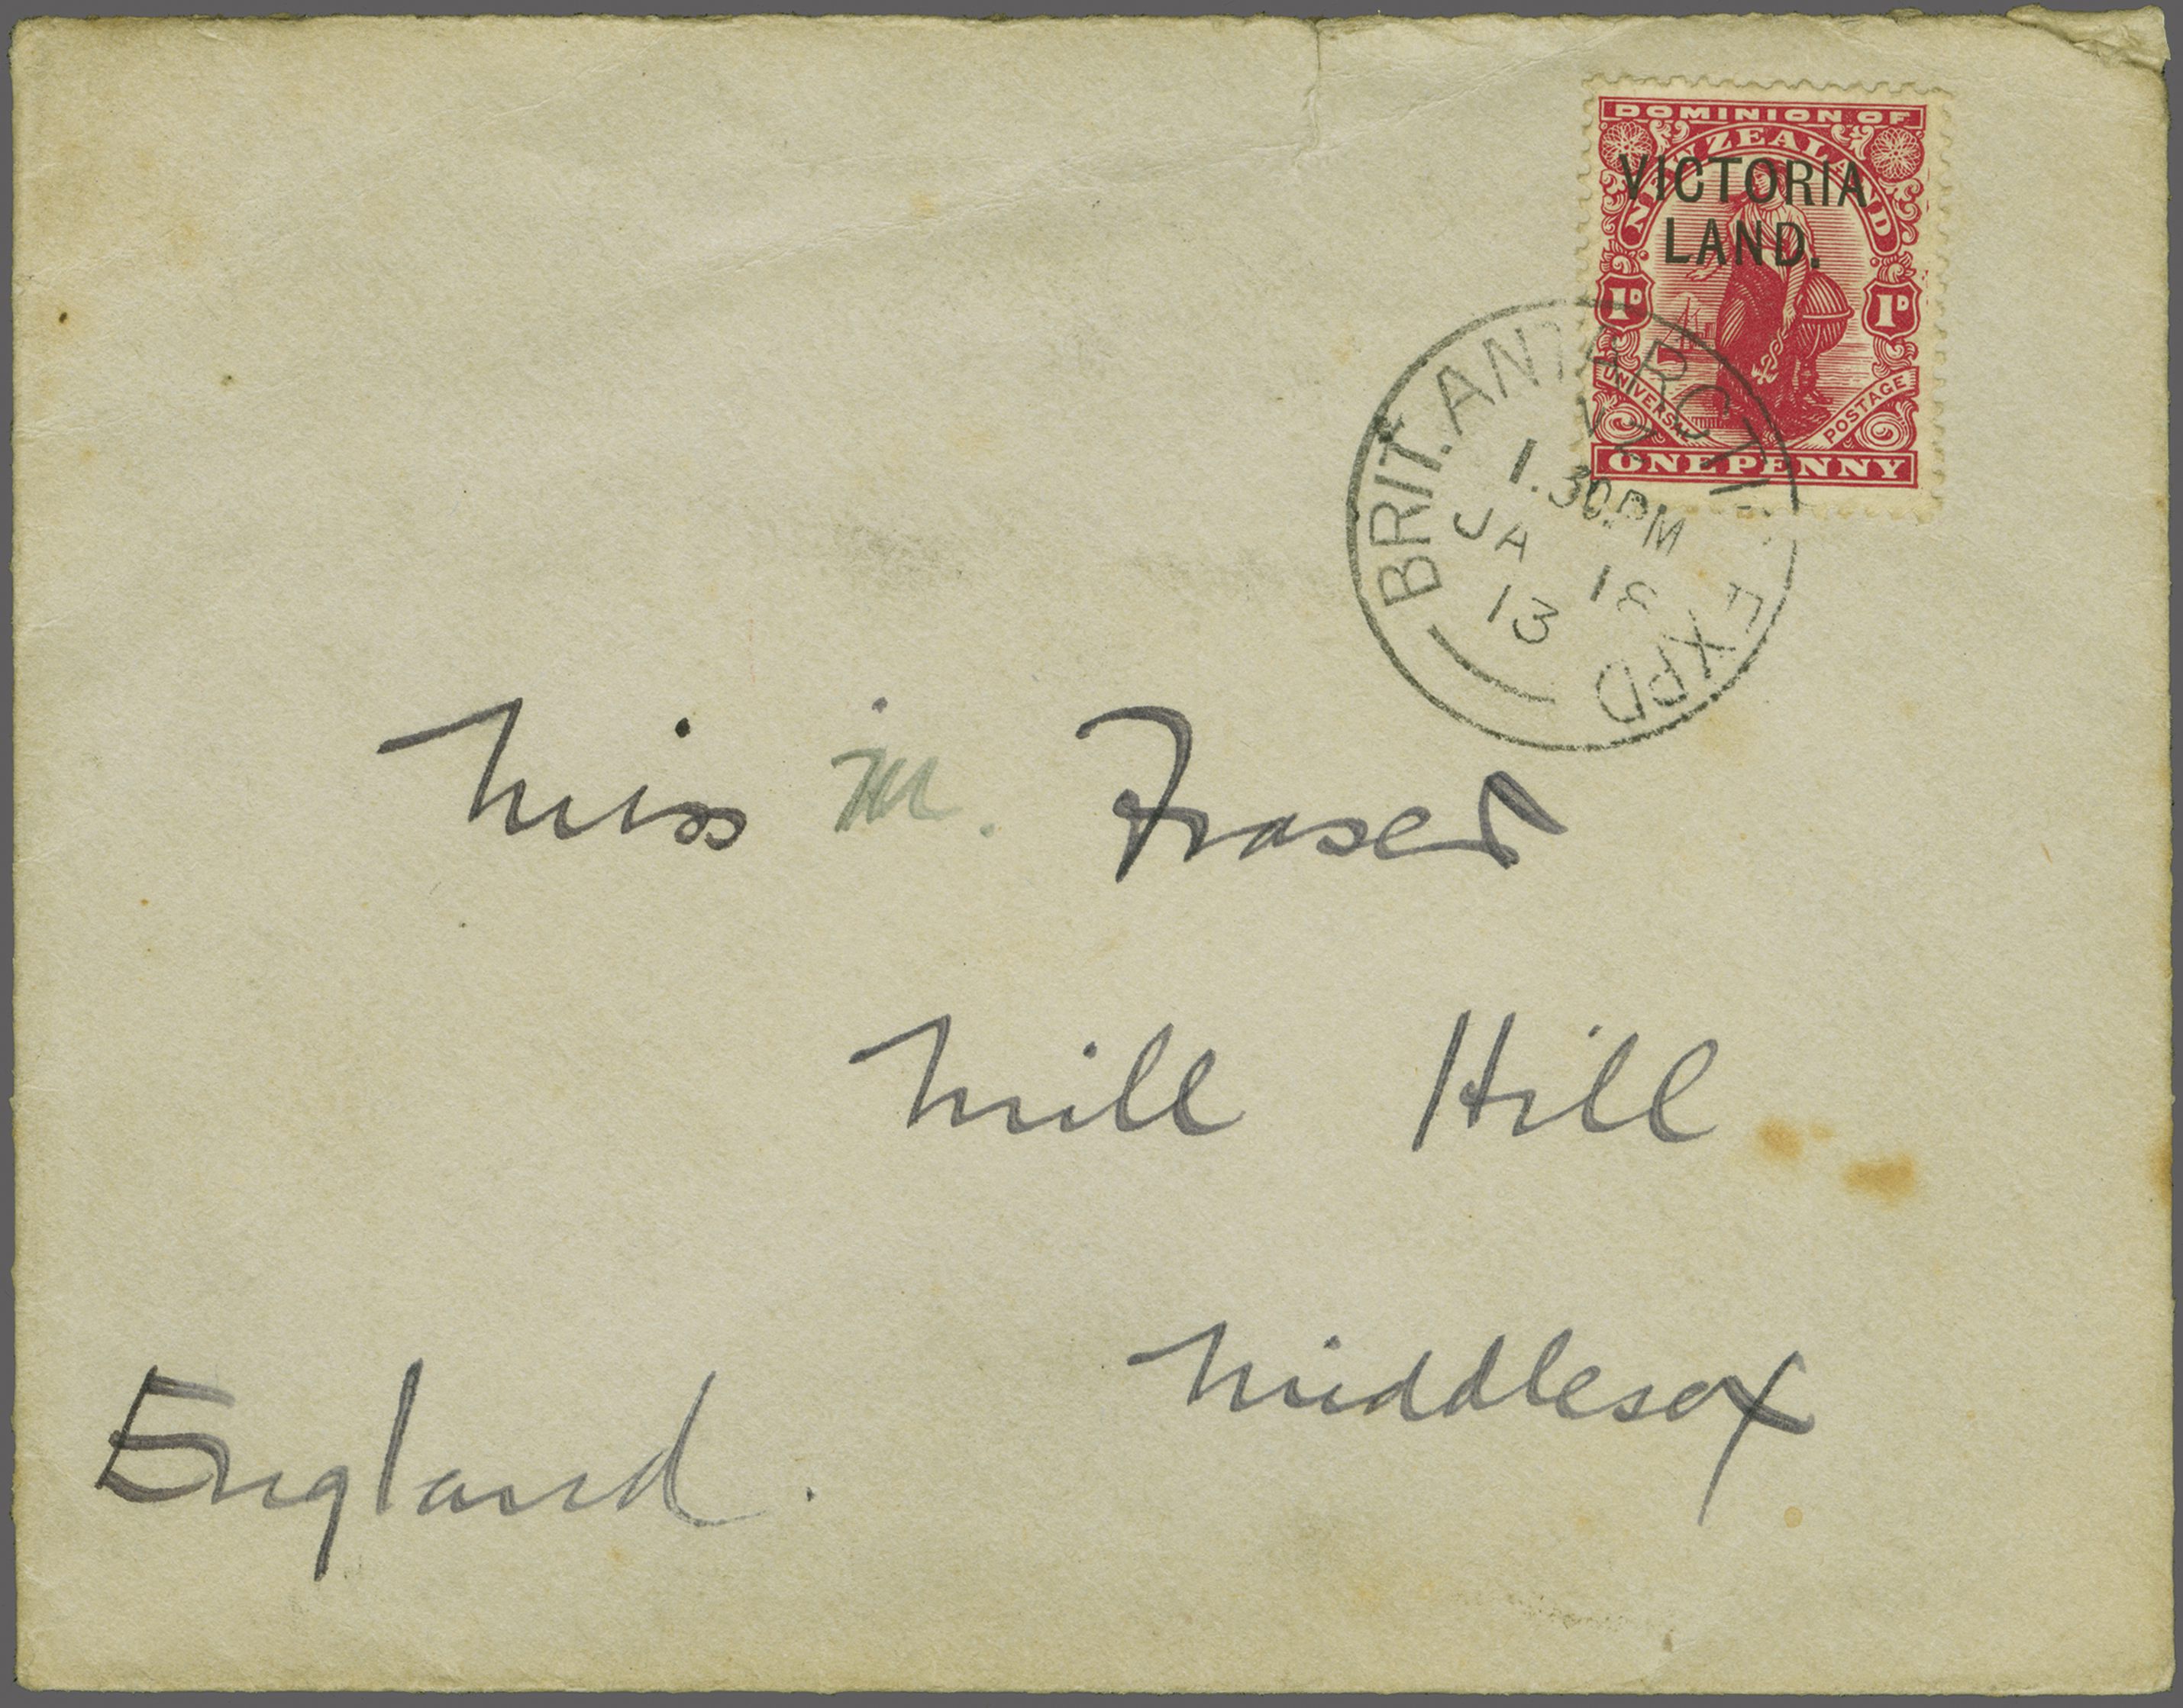 DOMINION OF
NEW ZEALAND
VICTORIA
LAND.
1D 1D
UNIVERSAL POSTAGE
ONE PENNY
BRIT. ANTARCTIC EXPD
NZ
1.30PM
JA 18
13
Miss M. Fraser
Mill Hill
Middlesex
England.